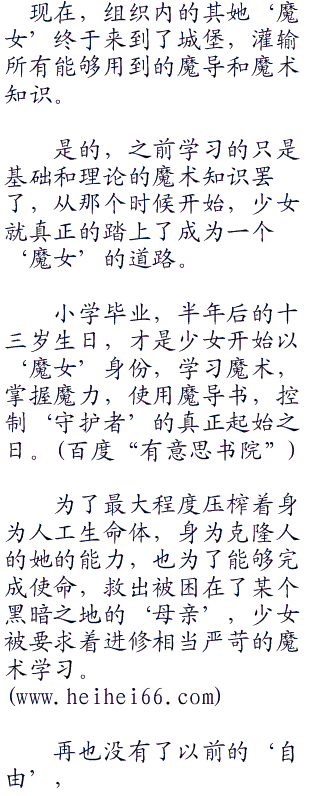 现在，组织内的其她‘魔
女’终于来到了城堡，灌输
所有能够用到的魔导和魔术
知识。
是的，之前学习的只是
基础和理论的魔术知识罢
了，从那个时候开始，少女
就真正的踏上了成为一个
‘魔女’的道路。
小学毕业，半年后的十
三岁生日，才是少女开始以
‘魔女’身份，学习魔术，
掌握魔力，使用魔导书，控
制‘守护者’的真正起始之
日。(百度“有意思书院”)
为了最大程度压榨着身
为人工生命体，身为克隆人
的她的能力，也为了能够完
成使命，救出被困在了某个
黑暗之地的‘母亲’，少女
被要求着进修相当严苛的魔
术学习。
(www.heihei66.com)
再也没有了以前的‘自
由’，